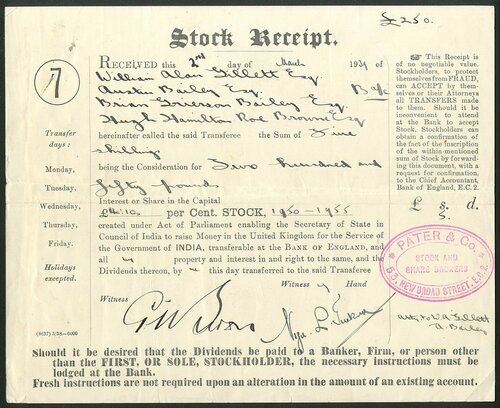 £250.
Stock Receipt.
7
RECEIVED this 2nd day of March 1939 of
William Alan Gillett Esq.
Austin Bailey Esq. B a/c
Brian Grierson Bailey Esq.
Hugh Hamilton Roe Browne Esq.
hereinafter called the said Transferee the Sum of Five
shillings
being the Consideration for Two hundred and
fifty pounds
Interest or Share in the Capital
per Cent. STOCK, 1950-1955
created under Act of Parliament enabling the Secretary of State in
Council of India to raise Money in the United Kingdom for the Service of
the Government of INDIA, transferable at the BANK OF ENGLAND, and
all my property and interest in and right to the same, and the
Dividends thereon, by me this day transferred to the said Transferee
Witness my Hand
Witness
Transfer
days:
Monday,
Tuesday,
Wednesday,
Thursday,
Friday.
Holidays
excepted.
☞ This Receipt is
of no negotiable value.
Stockholders, to protect
themselves from FRAUD,
can ACCEPT by them-
selves or their Attorneys
all TRANSFERS made
to them. Should it be
inconvenient to attend
at the Bank to accept
Stock, Stockholders can
obtain a confirmation
of the fact of the inscription
of the within-mentioned
sum of Stock by forward-
ing this document, with a
request for confirmation,
to the Chief Accountant,
Bank of England, E.C.2.
£ s. d.
5.
PATER & Co.
STOCK AND
SHARE BROKERS
63, NEW BROAD STREET, E.C.2.
W A Gillett
A. Bailey
Should it be desired that the Dividends be paid to a Banker, Firm, or person other
than the FIRST, OR SOLE, STOCKHOLDER, the necessary instructions must be
lodged at the Bank.
Fresh instructions are not required upon an alteration in the amount of an existing account.